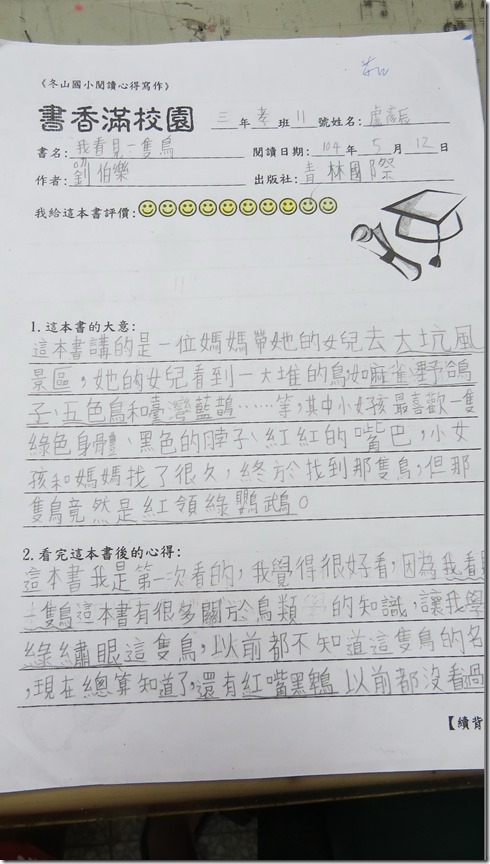 《冬山國小閱讀心得寫作》
書香滿校園 三年孝班11號姓名:盧
書名:我看見一隻鳥 閱讀日期:104年5月12日
作者:劉伯樂 出版社:青林國際
我給這本書評價:
1.這本書的大意:
這本書講的是一位媽媽帶她的女兒去大坑風
景區,她的女兒看到一大堆的鳥如麻雀、野鴿
子、五色鳥和臺灣藍鵲……等,其中小女孩最喜歡一隻
綠色身體、黑色的脖子、紅紅的嘴巴,小女
孩和媽媽找了很久,終於找到那隻鳥,但那
隻鳥竟然是紅領綠鸚鵡。
2.看完這本書後的心得:
這本書我是第一次看的,我覺得很好看,因為我看
一隻鳥這本書有很多關於鳥類的知識,讓我學
綠繡眼這隻鳥,以前都不知道這隻鳥的名
,現在總算知道了,還有紅嘴黑鵯以前都沒看過
【續背